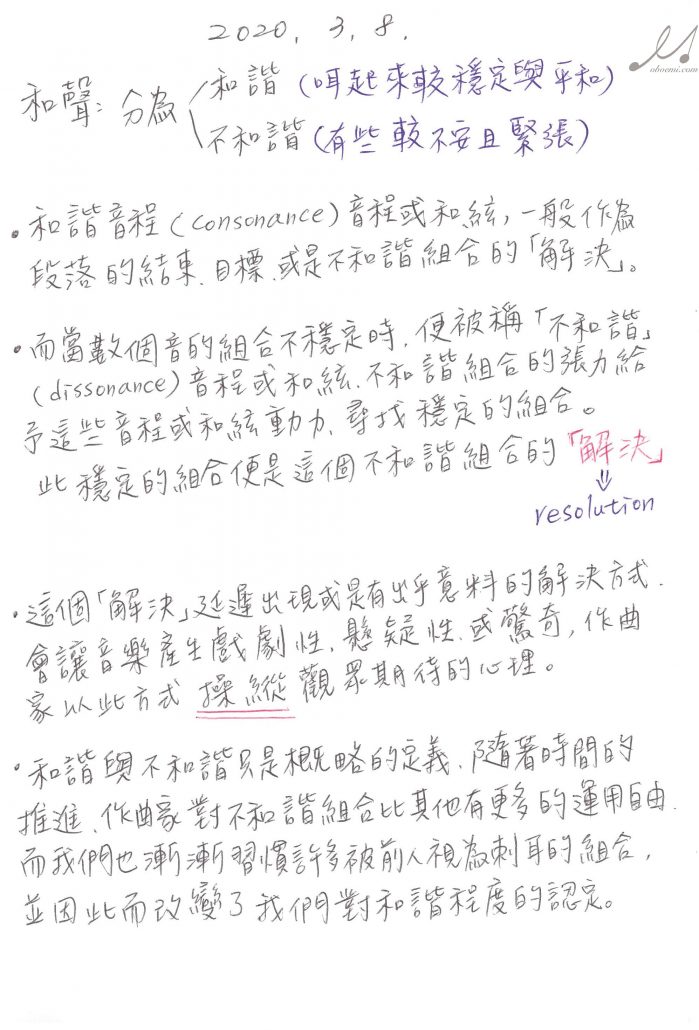 2020. 3. 8.
oboemi.com
和聲: 分為 和諧 (咡起來較穩定與平和)
不和諧 (有些較不安且緊張)
• 和諧音程 (consonance) 音程或和絃, 一般作為
段落的結束、目標、或是不和諧組合的「解決」。
• 而當數個音的組合不穩定時, 便被稱「不和諧」
(dissonance) 音程或和絃、不和諧組合的張力給
予這些音程或和絃動力、尋找穩定的組合。
此穩定的組合便是這個不和諧組合的「解決」
⇓
resolution
• 這個「解決」延遲出現或是有出乎意料的解決方式、
會讓音樂產生戲劇性, 懸疑性、或驚奇, 作曲
家以此方式 操縱 觀眾期待的心理。
• 和諧與不和諧只是概略的定義、隨著時間的
推進、作曲家對不和諧組合比其他有更多的運用自由.
而我們也漸漸習慣許多被前人視為刺耳的組合,
並因此而改變了我們對和諧程度的認定。